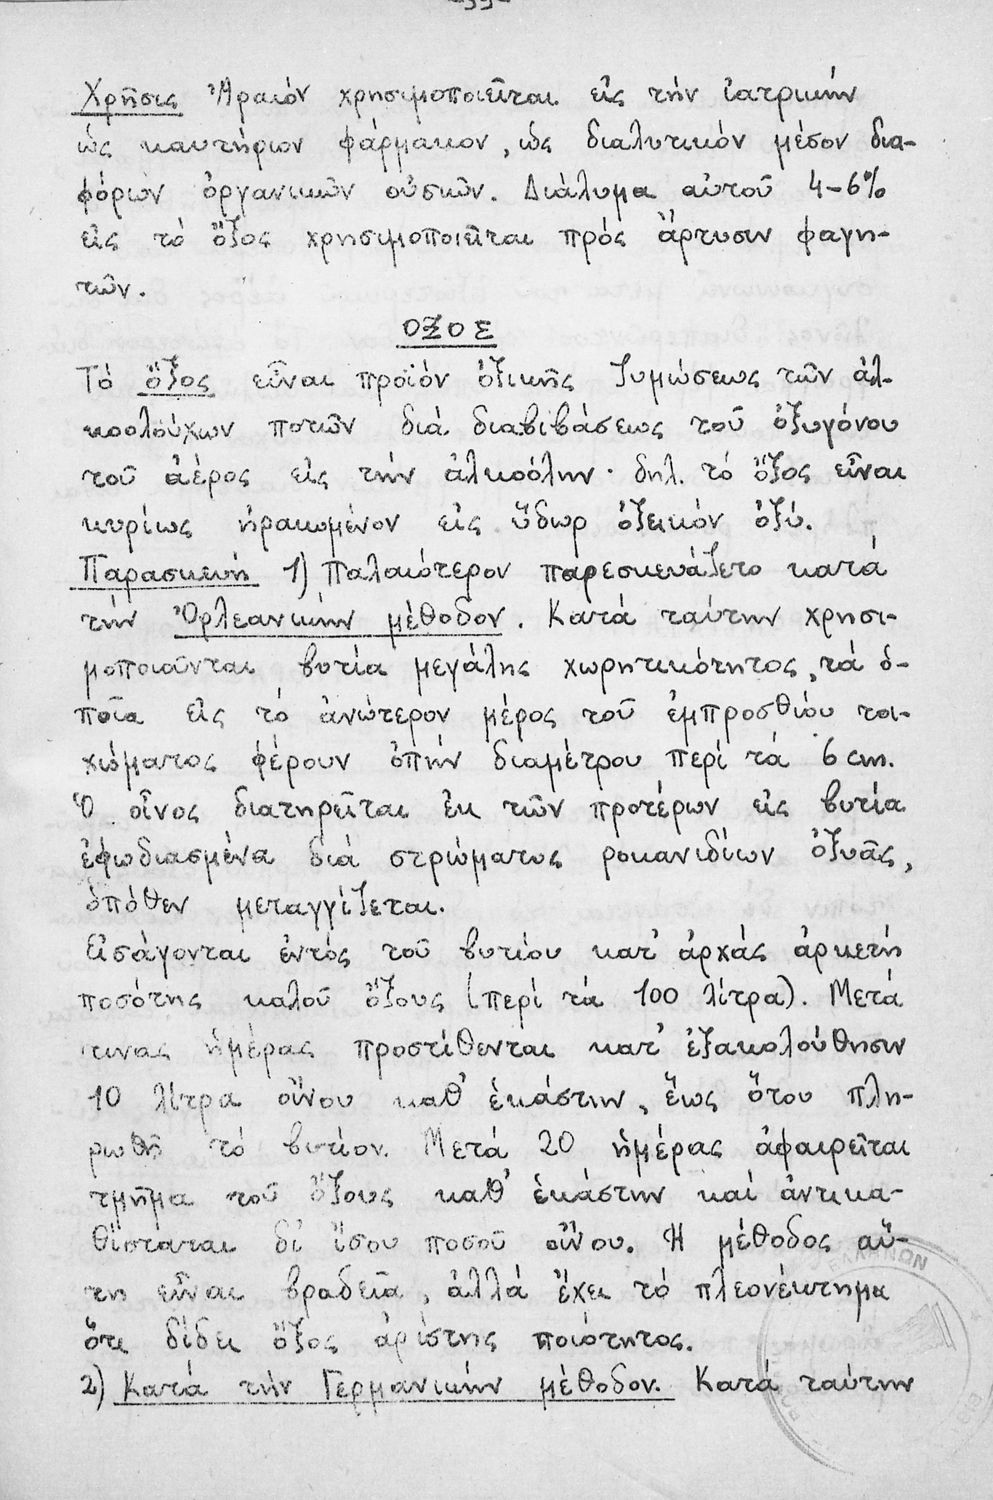 Χρῆσις Ἀραιόν χρησιμοποιεῖται εἰς τήν ἰατρικήν
ὡς καυτήριον φάρμακον, ὡς διαλυτικόν μέσον δια-
φόρων ὀργανικῶν οὐσιῶν. Διάλυμα αὐτοῦ 4-6%
εἰς τό ὄξος χρησιμοποιεῖται πρός ἄρτυσιν φαγη-
τῶν.
ΟΞΟΣ
Τό ὄξος εἶναι προϊόν ὀξικῆς ζυμώσεως τῶν ἀλ-
κοολούχων ποτῶν διά διαβιβάσεως τοῦ ὀξυγόνου
τοῦ ἀέρος εἰς τήν ἀλκοόλην· δηλ. τό ὄξος εἶναι
κυρίως ἠραιωμένον εἰς ὕδωρ ὀξεικόν ὀξύ.
Παρασκευή 1) Παλαιότερον παρεσκευάζετο κατά
τήν Ὀρλεανικήν μέθοδον. Κατά ταύτην χρησι-
μοποιοῦνται βυτία μεγάλης χωρητικότητος, τά ὁ-
ποῖα εἰς τό ἀνώτερον μέρος τοῦ ἐμπροσθίου τοι-
χώματος φέρουν ὀπήν διαμέτρου περί τά 6 cm.
Ὁ οἶνος διατηρεῖται ἐκ τῶν προτέρων εἰς βυτία
ἐφωδιασμένα διά στρώματος ροκανιδίων ὀξυᾶς,
ὁπόθεν μεταγγίζεται.
Εἰσάγονται ἐντός τοῦ βυτίου κατ' ἀρχάς ἀρκετή
ποσότης καλοῦ ὄξους (περί τά 100 λίτρα). Μετά
τινας ἡμέρας προστίθενται κατ' ἐξακολούθησιν
10 λίτρα οἴνου καθ' ἑκάστην, ἕως ὅτου πλη-
ρωθῆ τό βυτίον. Μετά 20 ἡμέρας ἀφαιρεῖται
τμῆμα τοῦ ὄξους καθ' ἑκάστην καί ἀντικα-
θίσταται δι' ἴσου ποσοῦ οἴνου. Ἡ μέθοδος αὕ-
τη εἶναι βραδεῖα, ἀλλά ἔχει τό πλεονέκτημα
ὅτι δίδει ὄξος ἀρίστης ποιότητος.
2) Κατά τήν Γερμανικήν μέθοδον. Κατά ταύτην